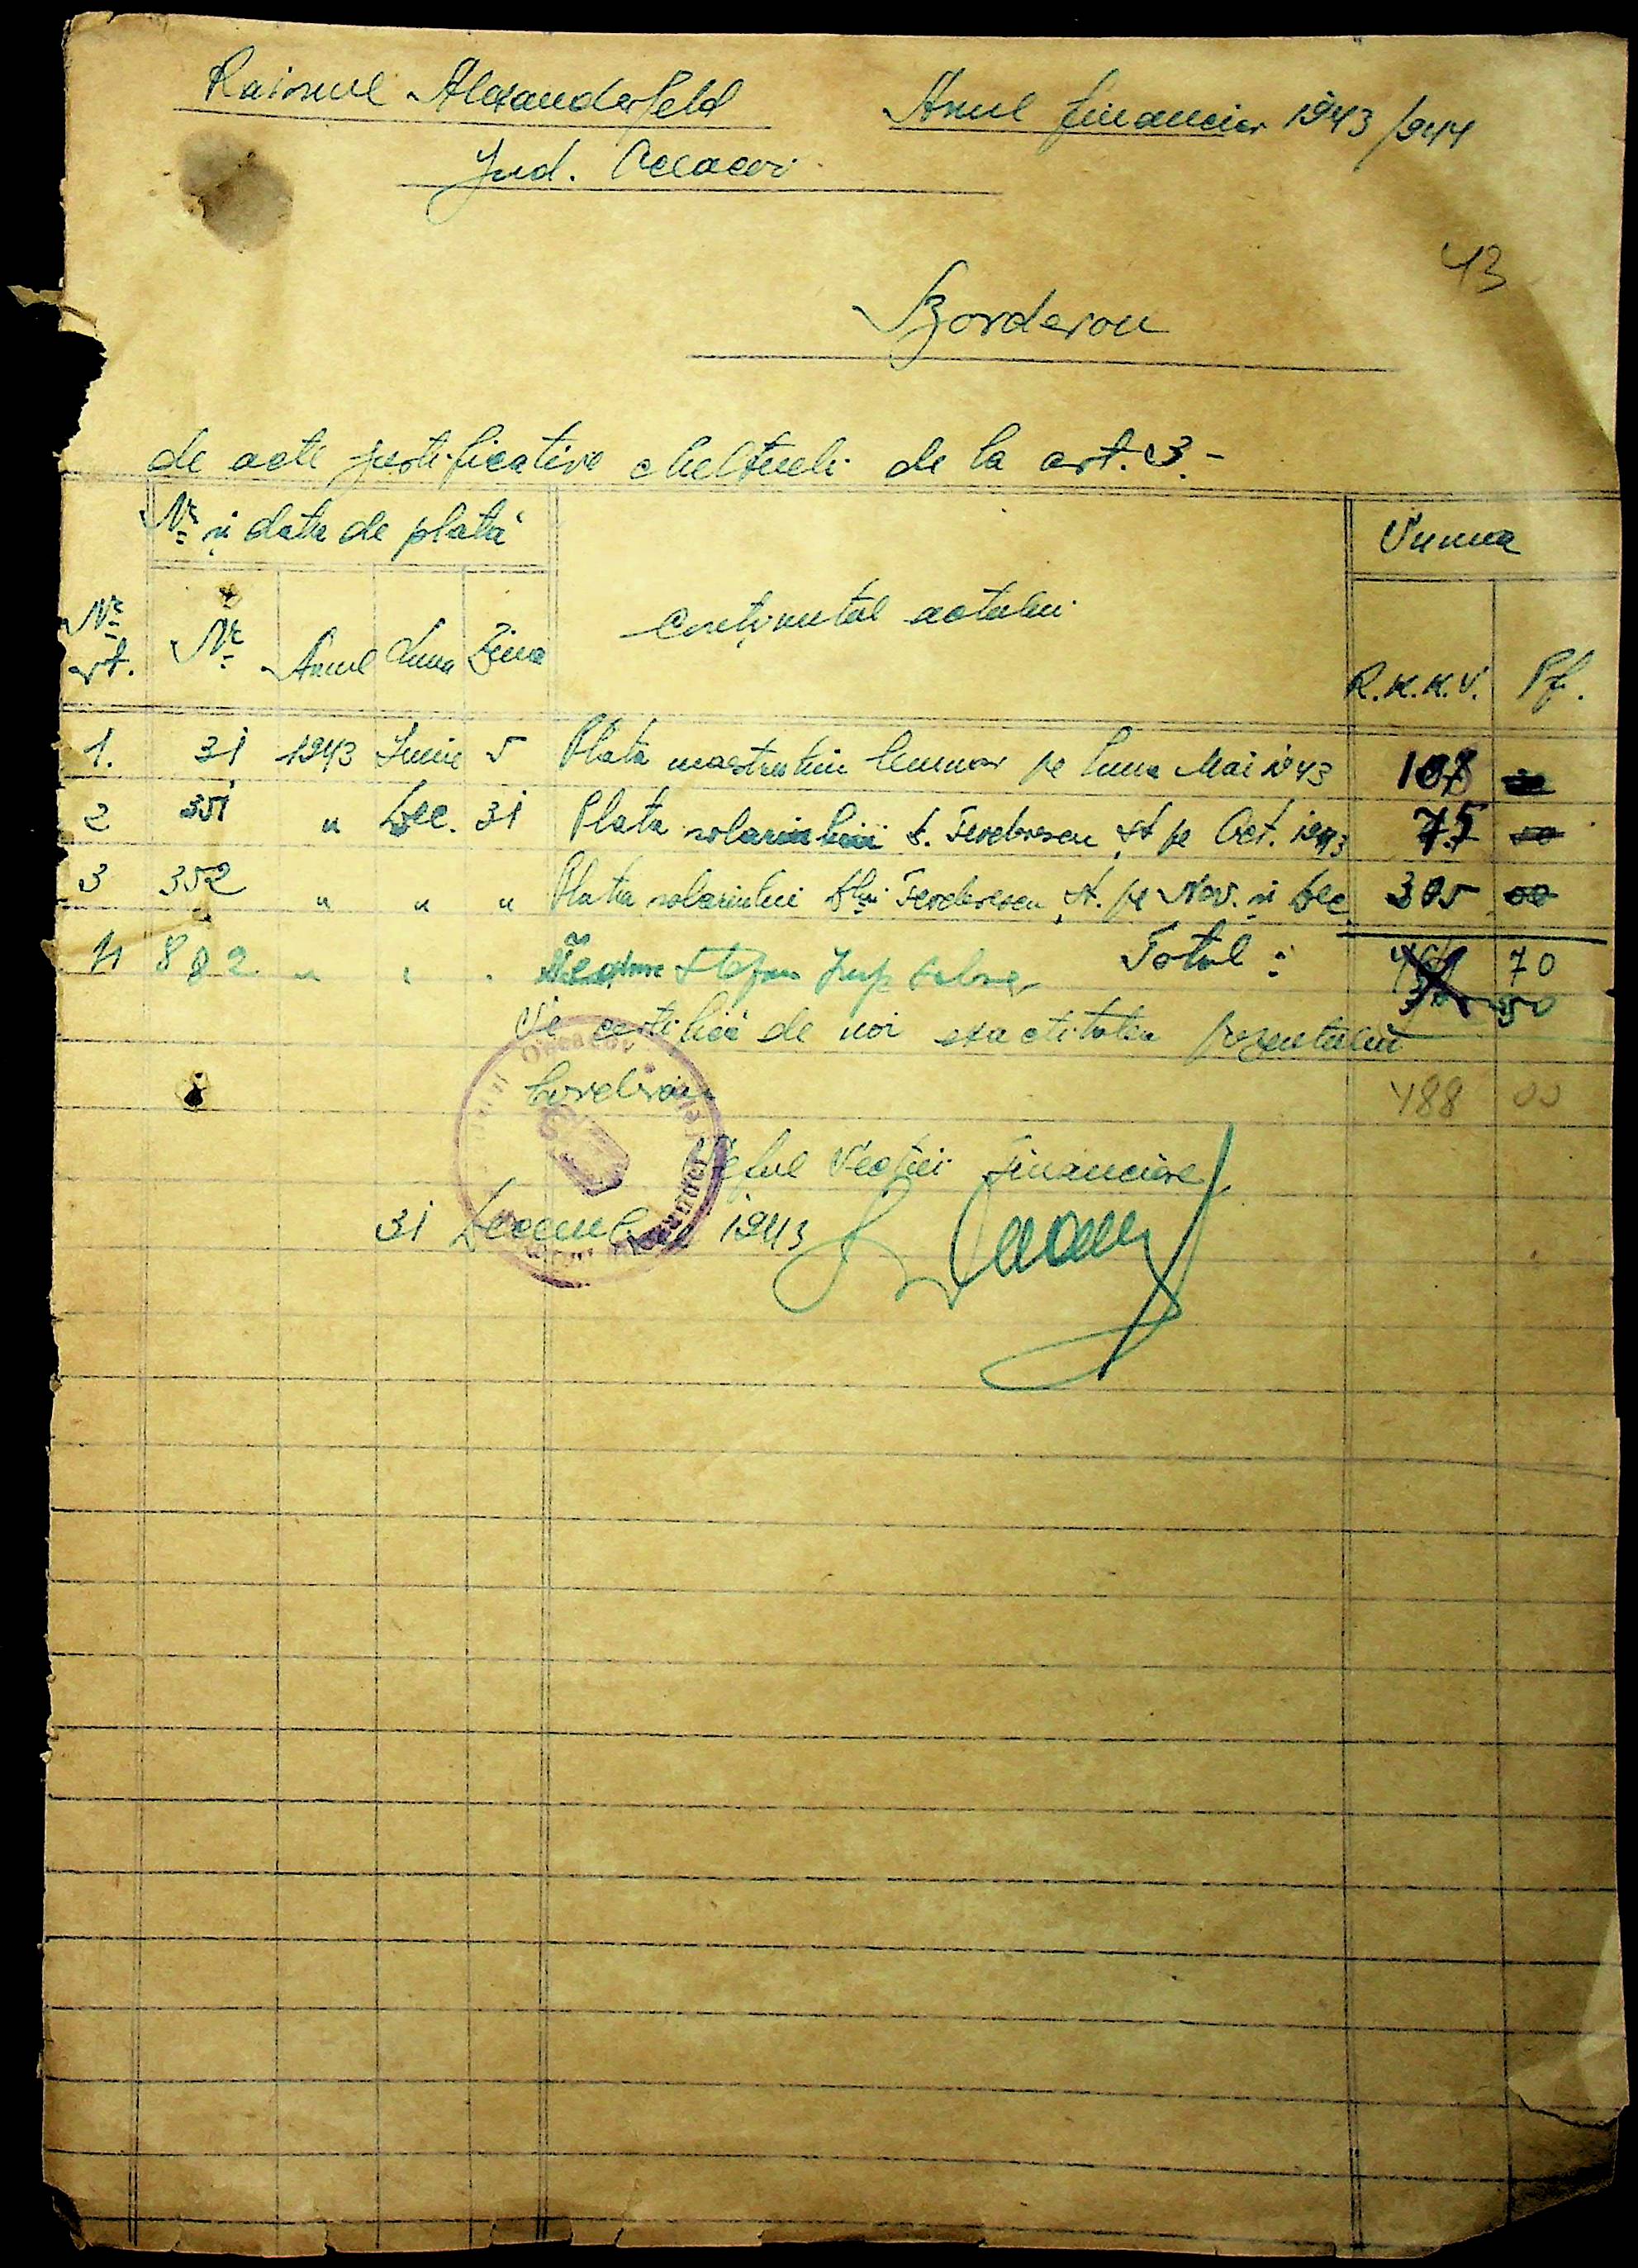 Raionul Alexanderfeld
Anul financiar 1943/944
Jud. Oceacov
43
Borderou
de acte justificative cheltueli de la art. 3.-
Nr și data de plată
Suma
Nr crt.
Nr
Anul
Luna
Ziua
Conținutul actului
R.K.K.S.
Pf.
1. 31 1943 Iunie 5 Plata pe luna Mai 1943 108
2 351 " Dec. 31 Plata salariului St pe Oct. 1943 75
3 352 " " " Plata salariului Dlui St. pe Nov. și Dec 305
4 882 " " " Ștefan
Total: 70
50
Se certifică de noi exactitatea prezentului
borderou
488 00
Șeful Secției Financiare
31 Decembrie 1943